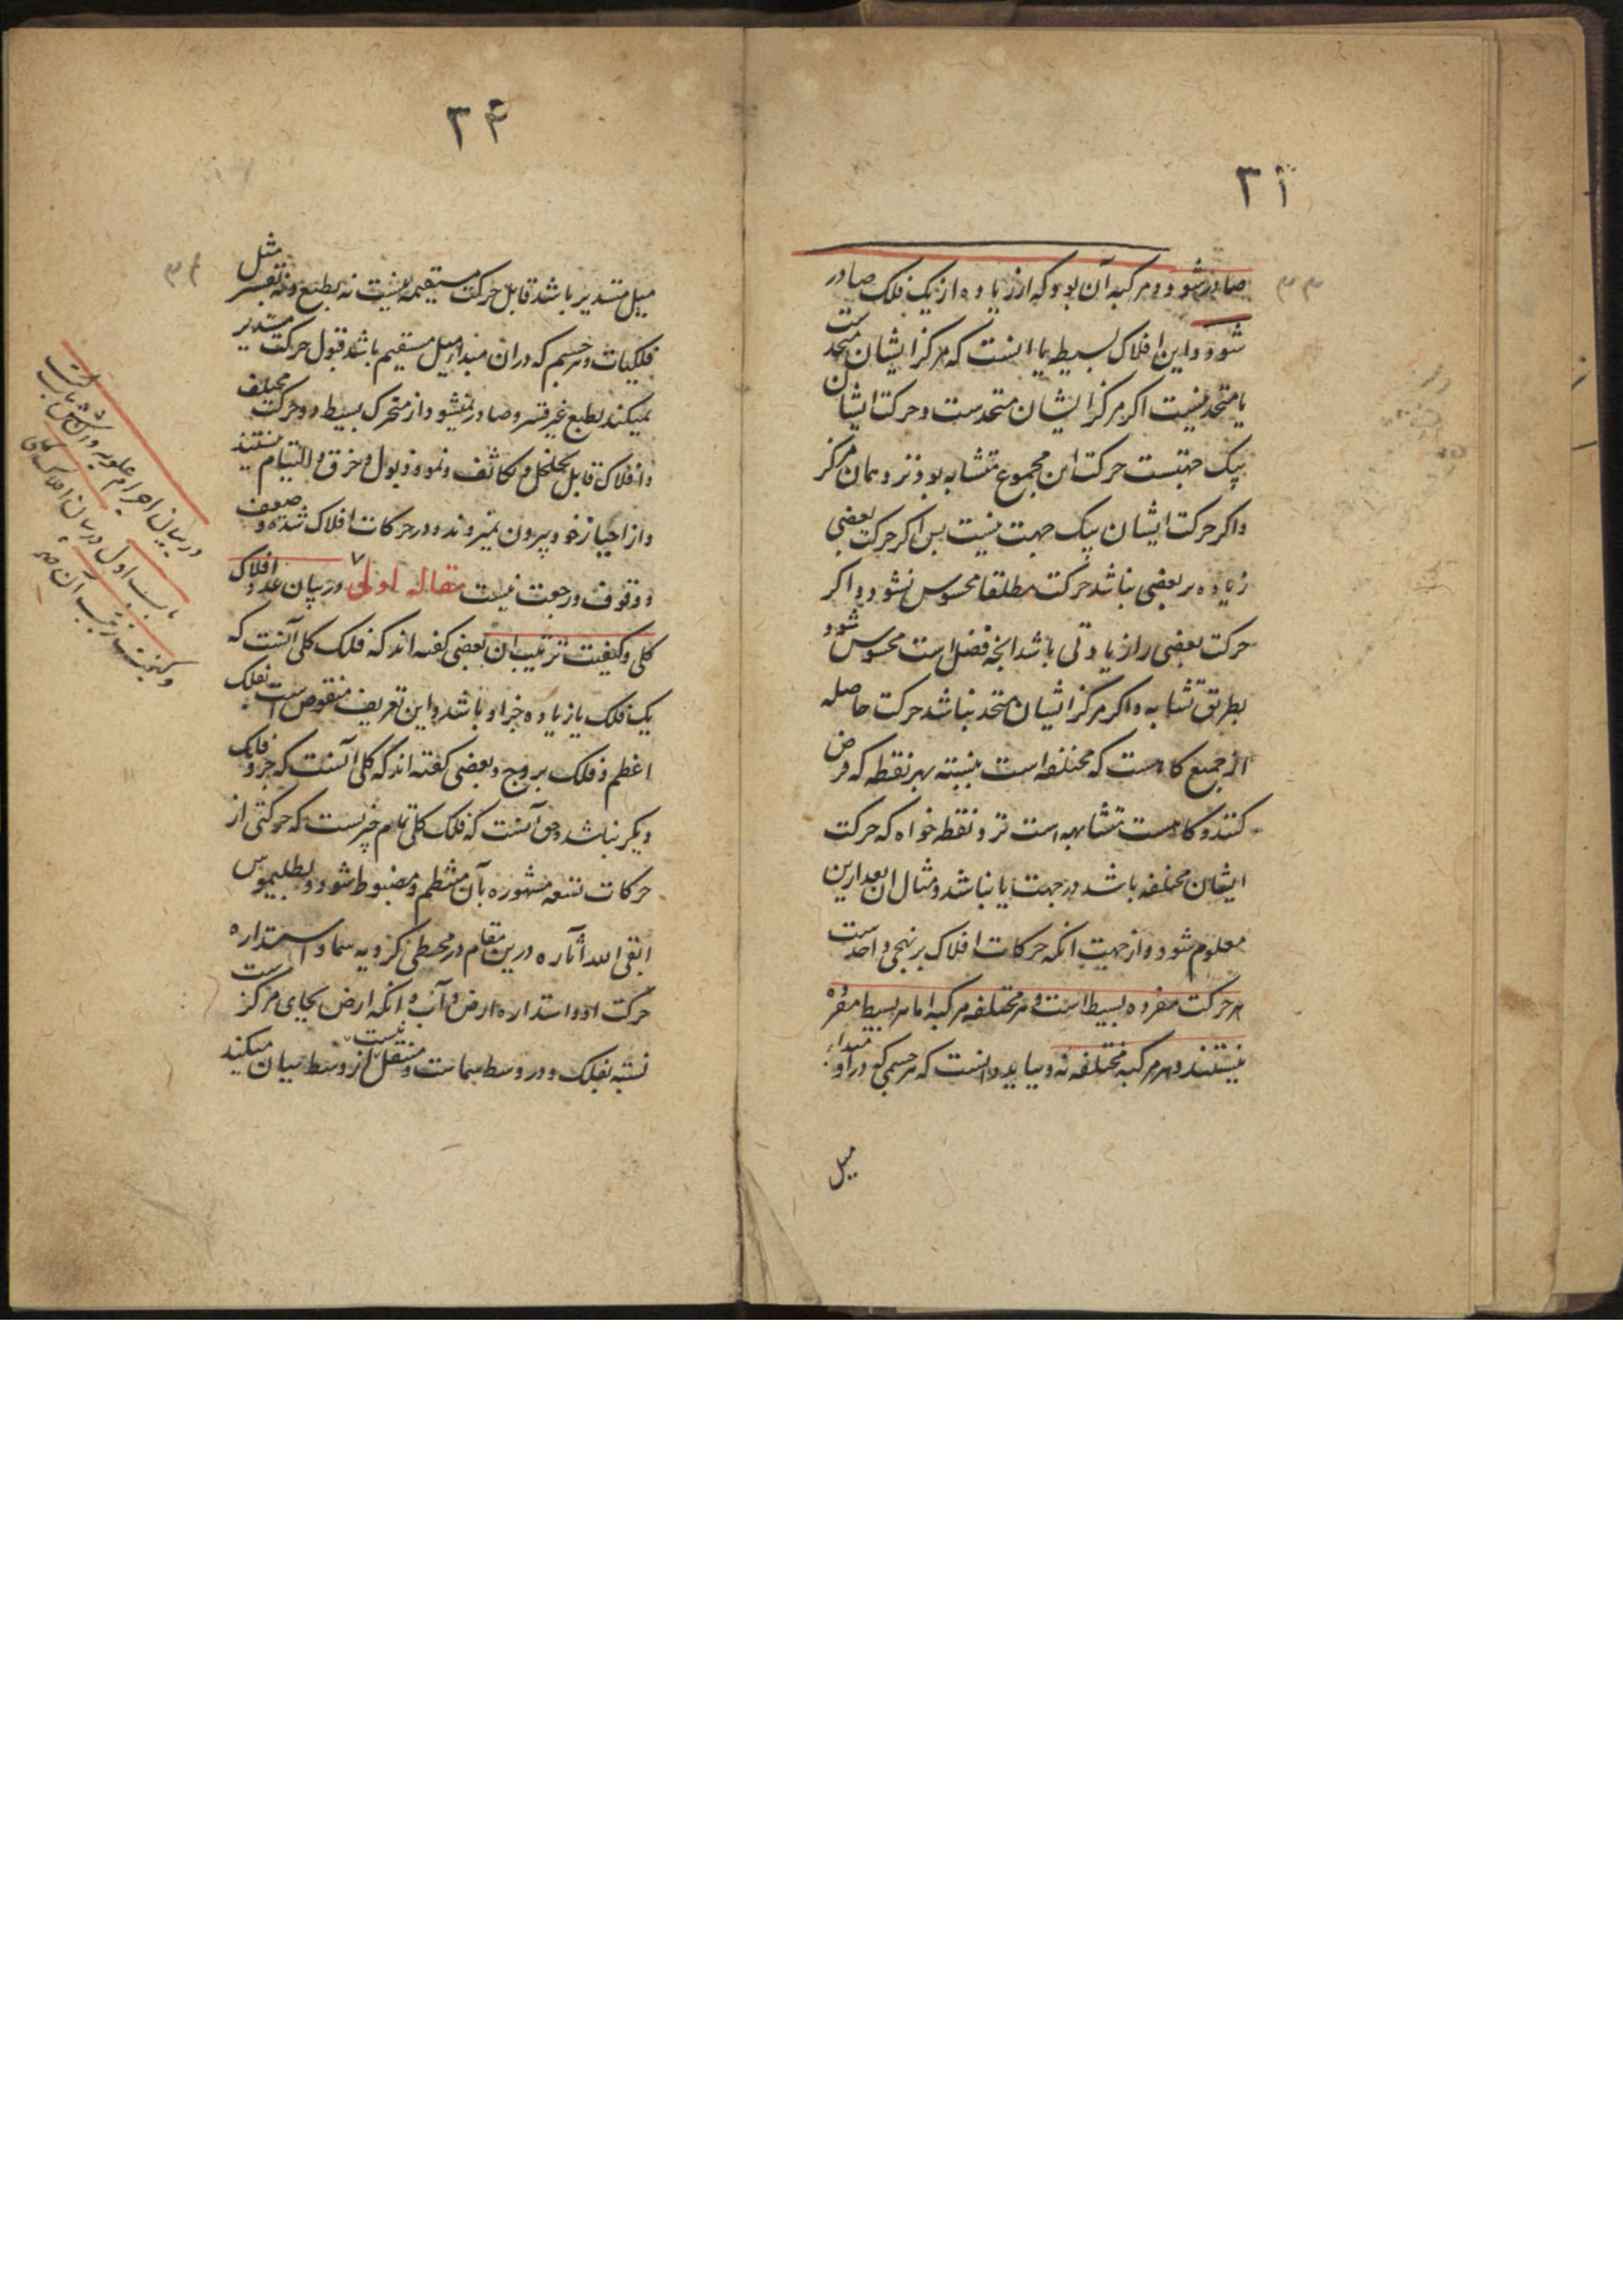 ۳۱
صادر شود و مرکبه آن بود که از زیاده از یک فلک صادر
شود و این افلاک بسیطه یا اینست که مرکز ایشان متحدست
یا متحد نیست اگر مرکز ایشان متحدست و حرکت ایشان
بیک جهتست حرکت این مجموع متشابه بود نزد همان مرکز
و اگر حرکت ایشان بیک جهت نیست پس اگر حرکت بعضی
زیاده بر بعضی نباشد حرکت مطلقا محسوس نشود و اگر
حرکت بعضی را زیادتی باشد آنچه فضل است محسوس شود
بطریق تشابه و اگر مرکز ایشان متحد نباشد حرکت حاصله
از جمیع کاهست که مختلفه است بنسبته بهر نقطه که فرض
کنند و کاهست متشابهه است نزد نقطه خواه که حرکت
ایشان مختلفه باشد در جهت یا نباشد و مثال ان بعد ازین
معلوم شود و از جهت انکه حرکات افلاک بر نهجی واحدست
هر حرکت مفرده بسیط است و هر مختلفه مرکبه اما هر بسیط مفرده
نیستند و هر مرکبه مختلفه نه و بباید دانست که هر جسمی که در او مبداء
میل
۳۴
میل مستدیر باشد قابل حرکت مستقیمه نیست نه بطبع و نه بقسر مثل
فلکیات و هر جسم که در ان مبدا میل مستقیم باشد قبول حرکت مستدیر
نمیکند بطبع غیر قسر و صادر نمیشود از متحرک بسیط دو حرکت مختلف
و افلاک قابل تخلخل و تکاثف و نمو و ذبول و خرق و التیام نیستند
و از احیاز خود بیرون نمیروند و در حرکات افلاک شده و ضعف
و وقوف و رجعت نیست مقاله اولی در بیان عدد افلاک
کلی و کیفیت ترتیب ان بعضی گفته اند که فلک کلی آنست که
یک فلک یا زیاده جزء او باشد و این تعریف منقوض است بفلک
اعظم و فلک بروج و بعضی گفته اند که کلی آنست که جزو فلک
دیگر نباشد و حق آنست که فلک کلی تمام چیزیست که حرکتی از
حرکات تسعه مشهوره بآن منتظم و مضبوط شود و بطلمیوس
ابقی الله آثاره درین مقام در مجسطی کرویه سما و استداره
حرکت او و استداره ارض و آب و انکه ارض بجای مرکز است
نسبه بفلک و در وسط سماست و منتقل از وسط نیست بیان میکند
در بیان اجرام علویه
باب اول در بیان افلاک کلی